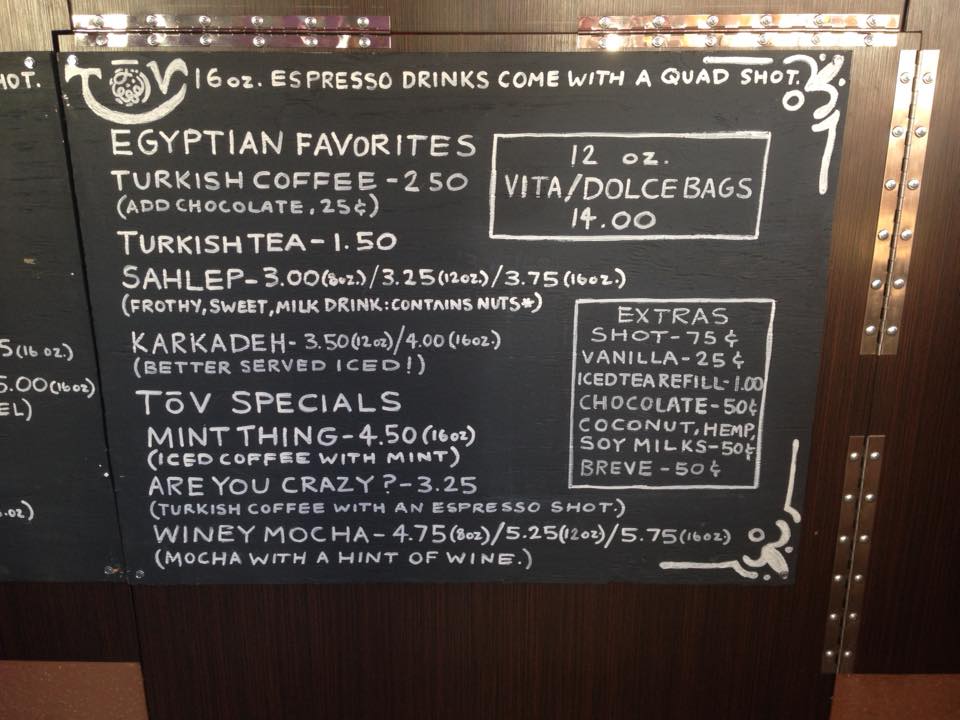 HOT.
5(16 oz.)
5.00(16oz)
EL)
.oz)
TŌV 16 oz. ESPRESSO DRINKS COME WITH A QUAD SHOT.
EGYPTIAN FAVORITES
TURKISH COFFEE - 2 50
(ADD CHOCOLATE, 25¢)
TURKISH TEA - 1.50
SAHLEP - 3.00(8oz.)/3.25(12oz)/3.75(16oz.)
(FROTHY, SWEET, MILK DRINK: CONTAINS NUTS*)
KARKADEH - 3.50(12oz)/4.00(16oz.)
(BETTER SERVED ICED!)
TōV SPECIALS
MINT THING - 4.50(16oz)
(ICED COFFEE WITH MINT)
ARE YOU CRAZY? - 3.25
(TURKISH COFFEE WITH AN ESPRESSO SHOT.)
WINEY MOCHA - 4.75(8oz)/5.25(12oz)/5.75(16oz)
(MOCHA WITH A HINT OF WINE.)
12 oz.
VITA/DOLCE BAGS
14.00
EXTRAS
SHOT - 75¢
VANILLA - 25¢
ICED TEA REFILL - 1.00
CHOCOLATE - 50¢
COCONUT, HEMP,
SOY MILKS - 50¢
BREVE - 50¢